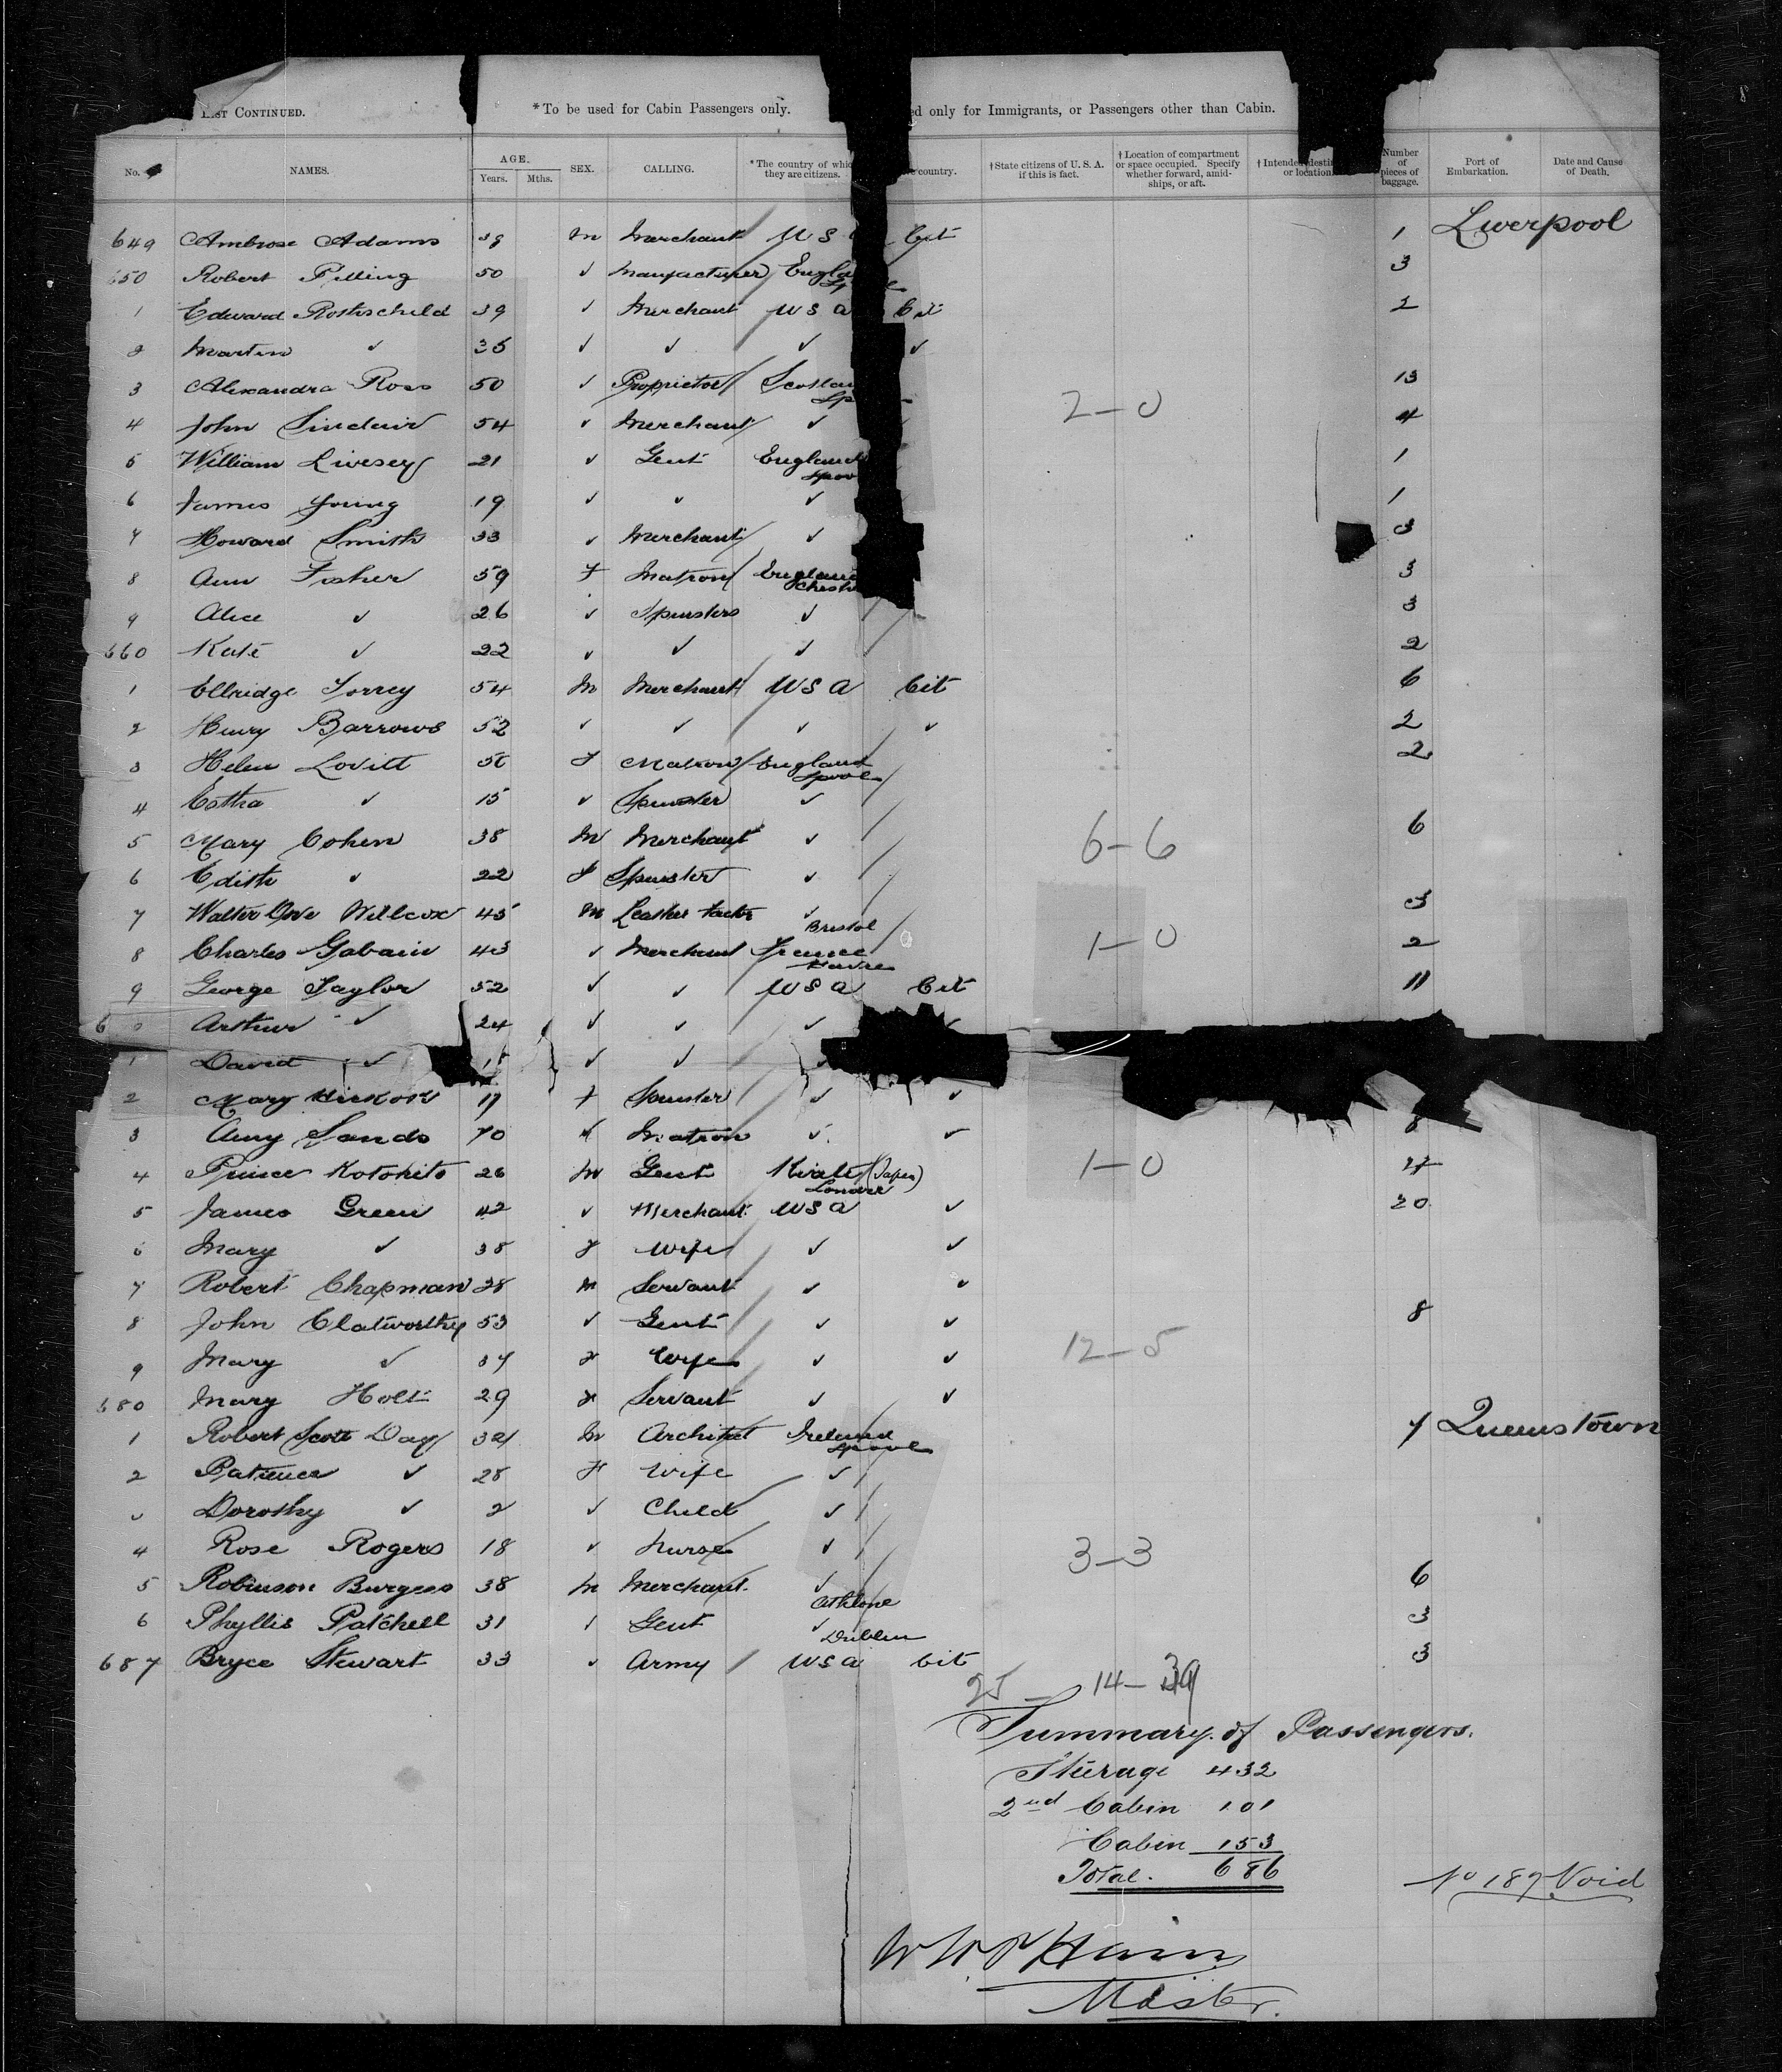 List Continued. *To be used for Cabin Passengers only. ed only for Immigrants, or Passengers other than Cabin.
No. NAMES. AGE. Years. Mths. SEX. CALLING. *The country of whic they are citizens. country. †State citizens of U. S. A. if this is fact. †Location of compartment or space occupied. Specify whether forward, amid-ships, or aft. †Intended destin or location. Number of pieces of baggage. Port of Embarkation. Date and Cause of Death.
649 Ambrose Adams M Merchant U S Cit 1 Liverpool
650 Robert Pilling 50 ✓ Manufacturer Engla 3
1 Edward Rothschild 39 ✓ Merchant U S A Cit 2
2 Martin ✓ 35 ✓ ✓ ✓ ✓
3 Alexandra Ross 50 ✓ Proprietor Scotlan 13
2-0
4 John Sinclair 54 ✓ Merchant ✓ 4
5 William Livesey 21 ✓ Gent England 1
6 James Young 19 ✓ ✓ ✓ 1
7 Howard Smith 33 ✓ Merchant ✓ 3
8 Ann Fisher 59 F Matron England Chesh 3
9 Alice ✓ 26 ✓ Spinsters ✓ 3
660 Kate ✓ 22 ✓ ✓ ✓ 2
1 Ellridge Torrey 54 M Merchant U S A Cit 6
2 Henry Barrows 52 ✓ ✓ ✓ ✓ 2
3 Helen Lovitt F Matron England Lpool 2
4 Estha ✓ 15 ✓ Spinster ✓
5 Mary Cohen 38 M Merchant ✓ 6-6 6
6 Edith ✓ 22 F Spinster ✓
7 Walter Willcox 45 M Leather factor ✓ Bristol 3
8 Charles Gabain 43 ✓ Merchant France Havre 1-0 2
9 George Taylor 52 ✓ ✓ U S A Cit 11
6 0 Arthur ✓ 24 ✓ ✓ ✓
1 David ✓ ✓ ✓
2 Mary 17 F Spinster ✓ ✓
3 Amy Sands 70 ✓ Matron ✓ ✓ 8
4 Prince Kotohito 26 M Gent (Japan) 1-0
5 James Green 42 ✓ Merchant U S A ✓ 20
6 Mary ✓ 38 F Wife ✓ ✓
7 Robert Chapman 28 M Servant ✓ ✓
8 John Clatworthy 53 ✓ Gent ✓ ✓ 8
12-5
9 Mary ✓ 37 F Wife ✓ ✓
680 Mary Holt 29 F Servant ✓ ✓
1 Robert Scott Day M Architect Ireland Lpool 7 Queenstown
2 Patience ✓ 28 F Wife ✓
3 Dorothy ✓ 2 ✓ Child ✓
4 Rose Rogers 18 ✓ Nurse ✓ 3-3
5 Robinson Burgess 38 M Merchant ✓ Athlone 6
6 Phyllis Patchell 31 ✓ Gent ✓ Dublin 3
687 Bryce Stewart 33 ✓ Army U S A Cit 3
25 - 14-39
Summary of Passengers.
Steerage 432
2nd Cabin 101
Cabin 153
Total. 686
No 187 Void
Master.